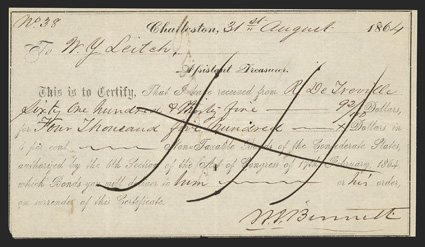 No 38
Charleston, 31st August 1864
To W. Y. Leitch,
Assistant Treasurer.
This is to Certify, That I have received from R De Treville
Sixty One hundred & thirty five 92/100 Dollars,
for Four Thousand five hundred Dollars in
4 per cent. Non-Taxable Bonds of the Confederate States,
authorized by the 6th Section of the Act of Congress of 17th February, 1864
which Bonds you will deliver to him or his order,
on surrender of this Certificate.
Bennett